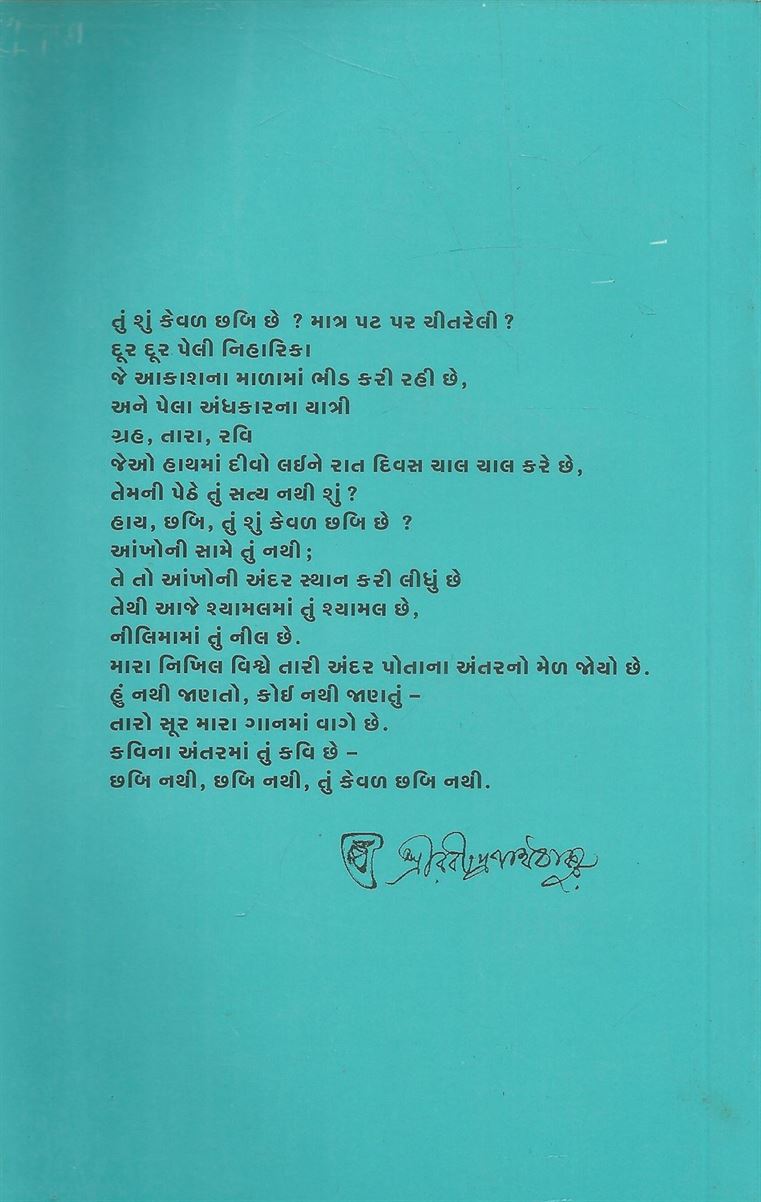 તું શું કેવળ છબિ છે ? માત્ર પટ પર ચીતરેલી ?
દૂર દૂર પેલી નિહારિકા
જે આકાશના માળામાં ભીડ કરી રહી છે,
અને પેલા અંધકારના યાત્રી
ગ્રહ, તારા, રવિ
જેઓ હાથમાં દીવો લઈને રાત દિવસ ચાલ ચાલ કરે છે,
તેમની પેઠે તું સત્ય નથી શું ?
હાય, છબિ, તું શું કેવળ છબિ છે ?
આંખોની સામે તું નથી ;
તે તો આંખોની અંદર સ્થાન કરી લીધું છે
તેથી આજે શ્યામલમાં તું શ્યામલ છે,
નીલિમામાં તું નીલ છે.
મારા નિખિલ વિશ્વે તારી અંદર પોતાના અંતરનો મેળ જોયો છે.
હું નથી જાણતો, કોઈ નથી જાણતું –
તારો સૂર મારા ગાનમાં વાગે છે.
કવિના અંતરમાં તું કવિ છે –
છબિ નથી, છબિ નથી, તું કેવળ છબિ નથી.